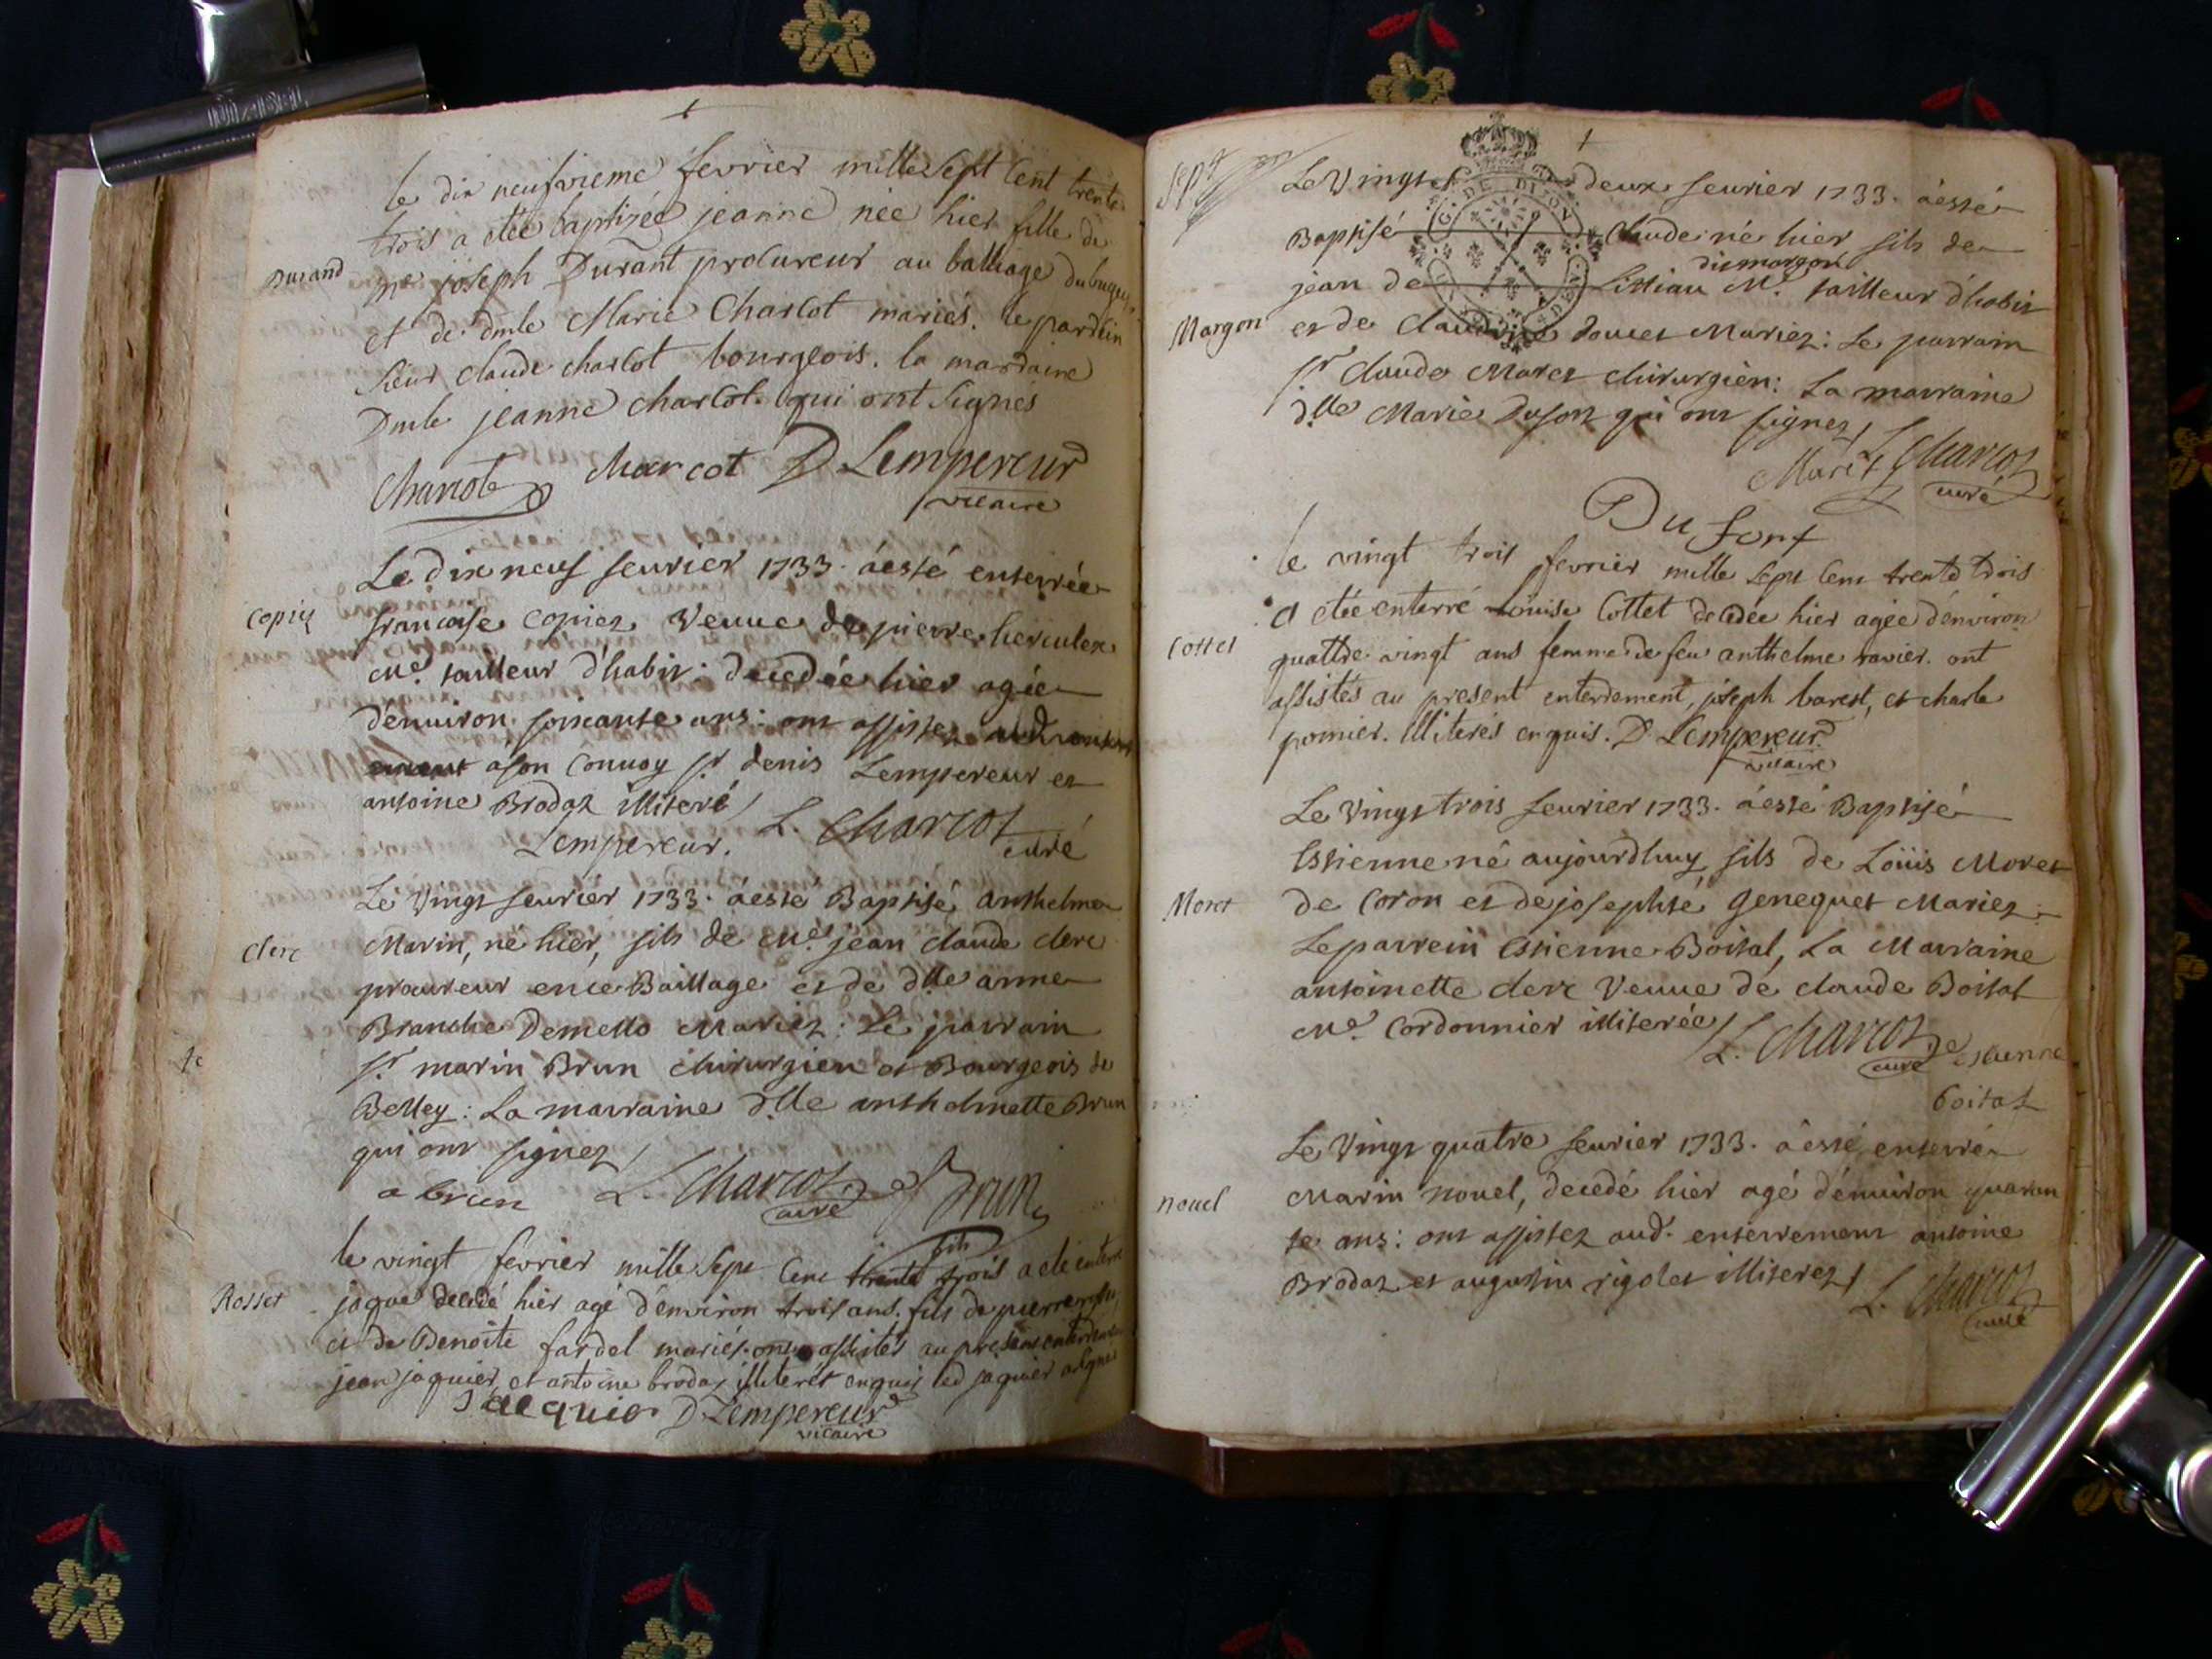 le dix neufvieme fevrier mille sept cent trente
trois a etée baptizée jeanne née hier fille de
Durand
me joseph Durant procureur au balliage du bugey
et de dmle Marie Charcot mariés. le pardin
sieur claude charcot bourgeois. la mardaine
Dmle jeanne charcot. qui ont signés
Charcot Charcot D Lempereur
vicaire
Le dix neuf feurier 1733. a esté enterrée
Copin
francoise Copiez Veuue de pierre hercules
Me. tailleur d'habit: decedée hier agée
d'enuiron soixante ans: ont assistez
a son Conuoy sr. denis Lempereur et
antoine Brodaz illiteré
Lempereur. L. Charcot
curé
Le Vingt feurier 1733. a esté Baptisé anthelme
Clerc
Marin, né hier, fils de Me. jean claude clerc
procureur en ce Baillage et de dlle anne
Branche Demello Mariez: Le parrain
sr. marin Brun chirurgien et Bourgeois de
Belley: La marraine dlle anthelmette Brun
qui ont signez
a brun L. Charcot Brun
curé
fils
le vingt fevrier mille sept Cent trente trois a eté enterré
Rosset
jaque decedé hier agé d'environ trois ans, fils de pierre
et de Benoîte fardel mariés. ont assistés au present enterdement
jean jaquier, et antoine brodaz illiterés enquis led jaquier a signé
Jacquier D Lempereur
vicaire
Sept
Le Vingt deux feurier 1733. a esté
G. DE DIJON
Baptisé Claude né hier fils de
dit margon
jean de Littiau Me. tailleur d'habit
Margon
et de Claudine doucet Mariez: Le parrain
sr Claude Maret chirurgien: La marraine
dlle Marie Dufort qui ont signez
Maret L Charcot
curé
Du fort
le vingt trois fevrier mille sept Cent trente trois
a etée enterré Louise Cottet decedée hier agée d'environ
Cottet
quattre vingt ans femme de feu anthelme ravier. ont
assistés au present enterdement, joseph barest, et charle
pomier. illiterés enquis. D Lempereur
vicaire
Le Vingt trois feurier 1733. a esté Baptisé
Estienne né aujourdhuy fils de Loüis Moret
Moret
de Coron et de josephté Genequet Mariez:
Le parrein Estienne Boitat, La Marraine
antoinette clerc Veuue de claude Boitat
Me. Cordonnier illiterée
L. Charcot estienne
curé
boitat
Le Vingt quatre feurier 1733. a esté enterré
nouel
Marin nouel, decedé hier agé d'enuiron quaran
te ans: ont assistez aud. enterrement antoine
Brodaz et augustin rigolet illiterez
L. Charcot
curé